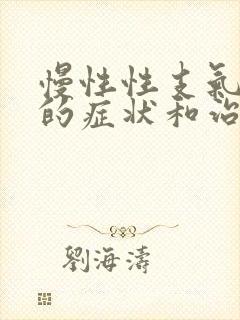 慢性性支氣
的症状和治
劉海濤